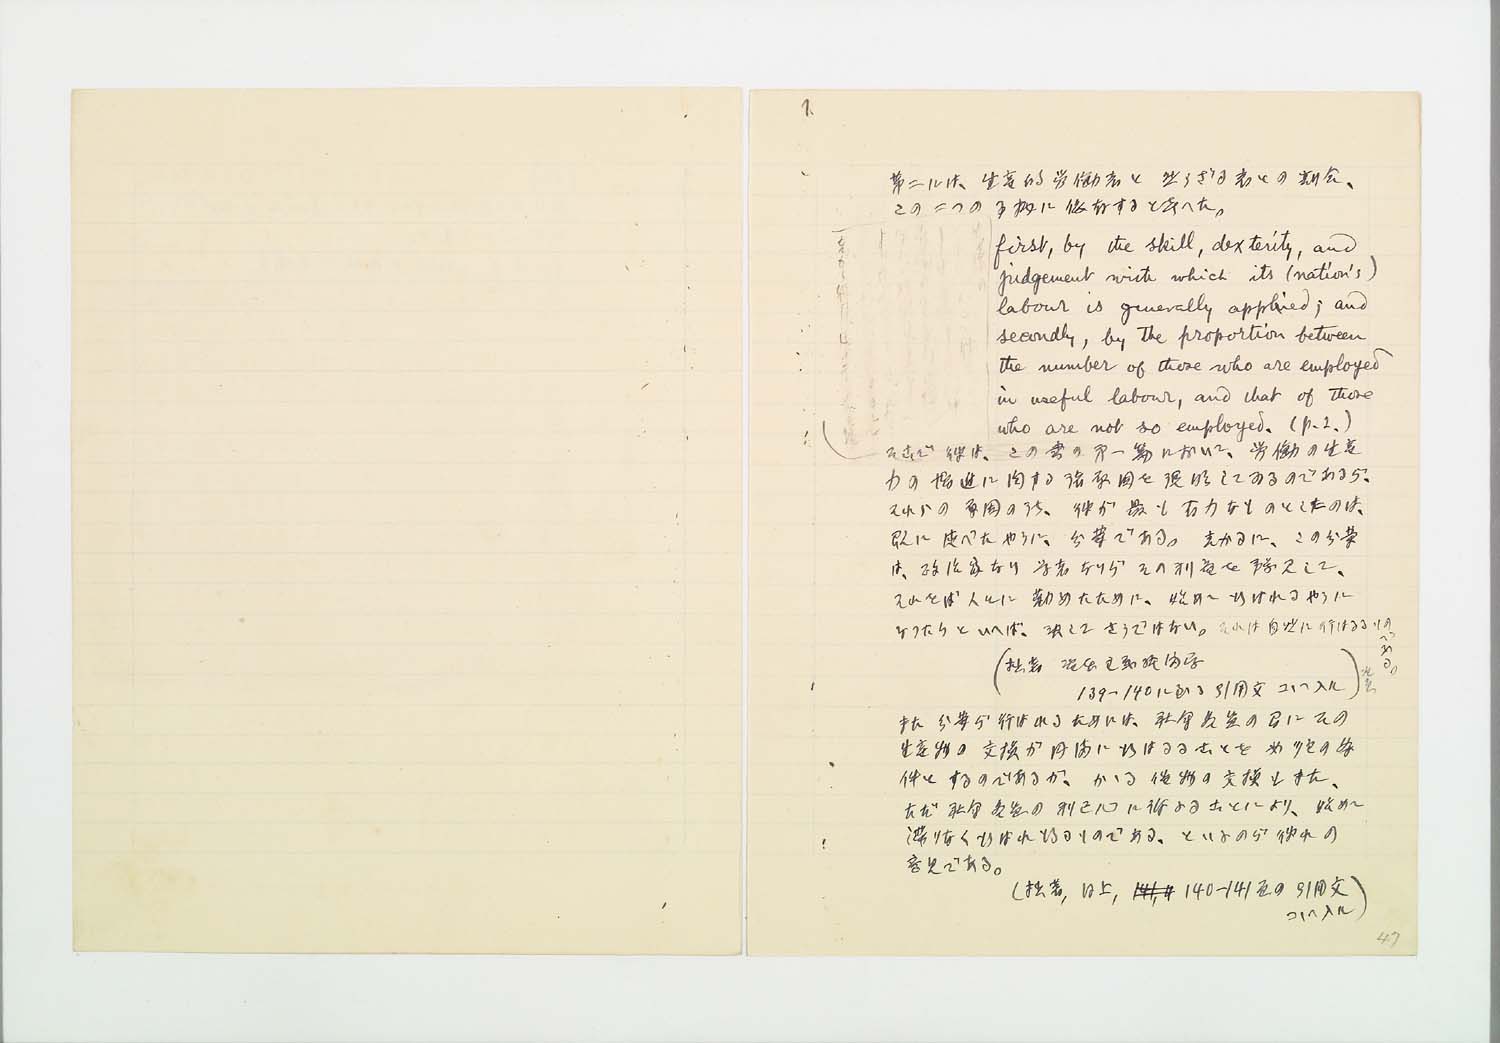 第二には、生産的労働者と然らざる者との割合、
この二つの事情に依存すると考へた。
first, by the skill, dexterity, and
judgement with which its (nation's)
labour is generally applied; and
secondly, by the proportion between
the number of those who are employed
in useful labour, and that of those
who are not so employed. (p.1.)
そこで彼は、この書の第一篇において、労働の生産
力の増進に関する諸原因を説明してゐるのであるが、
それらの原因のうち、彼が最も有力なものとしたのは、
既に述べたやうに、分業である。しかるに、この分業
は、政治家なり学者なりがその利益を予見して、
それをば人々に勧めたために、始めて行はれるやうに
なつたかといへば、決してさうではない。それは自然に行はるるものである。
(拙著 資本主義経済学
139-140に至る引用文コヽヘ入ル)
また分業が行はれるためには、社会各員の間にその
生産物の交換が円滑に行はるることを必須の条
件とするのであるが、かかる貨物の交換もまた、
ただ社会各員の利己心に訴ふることにより、始めて
滞りなく行はれ得るものである、といふのが彼れの
意見である。
(拙著, 同上, 140-141頁の引用文
コヽヘ入ル)
47